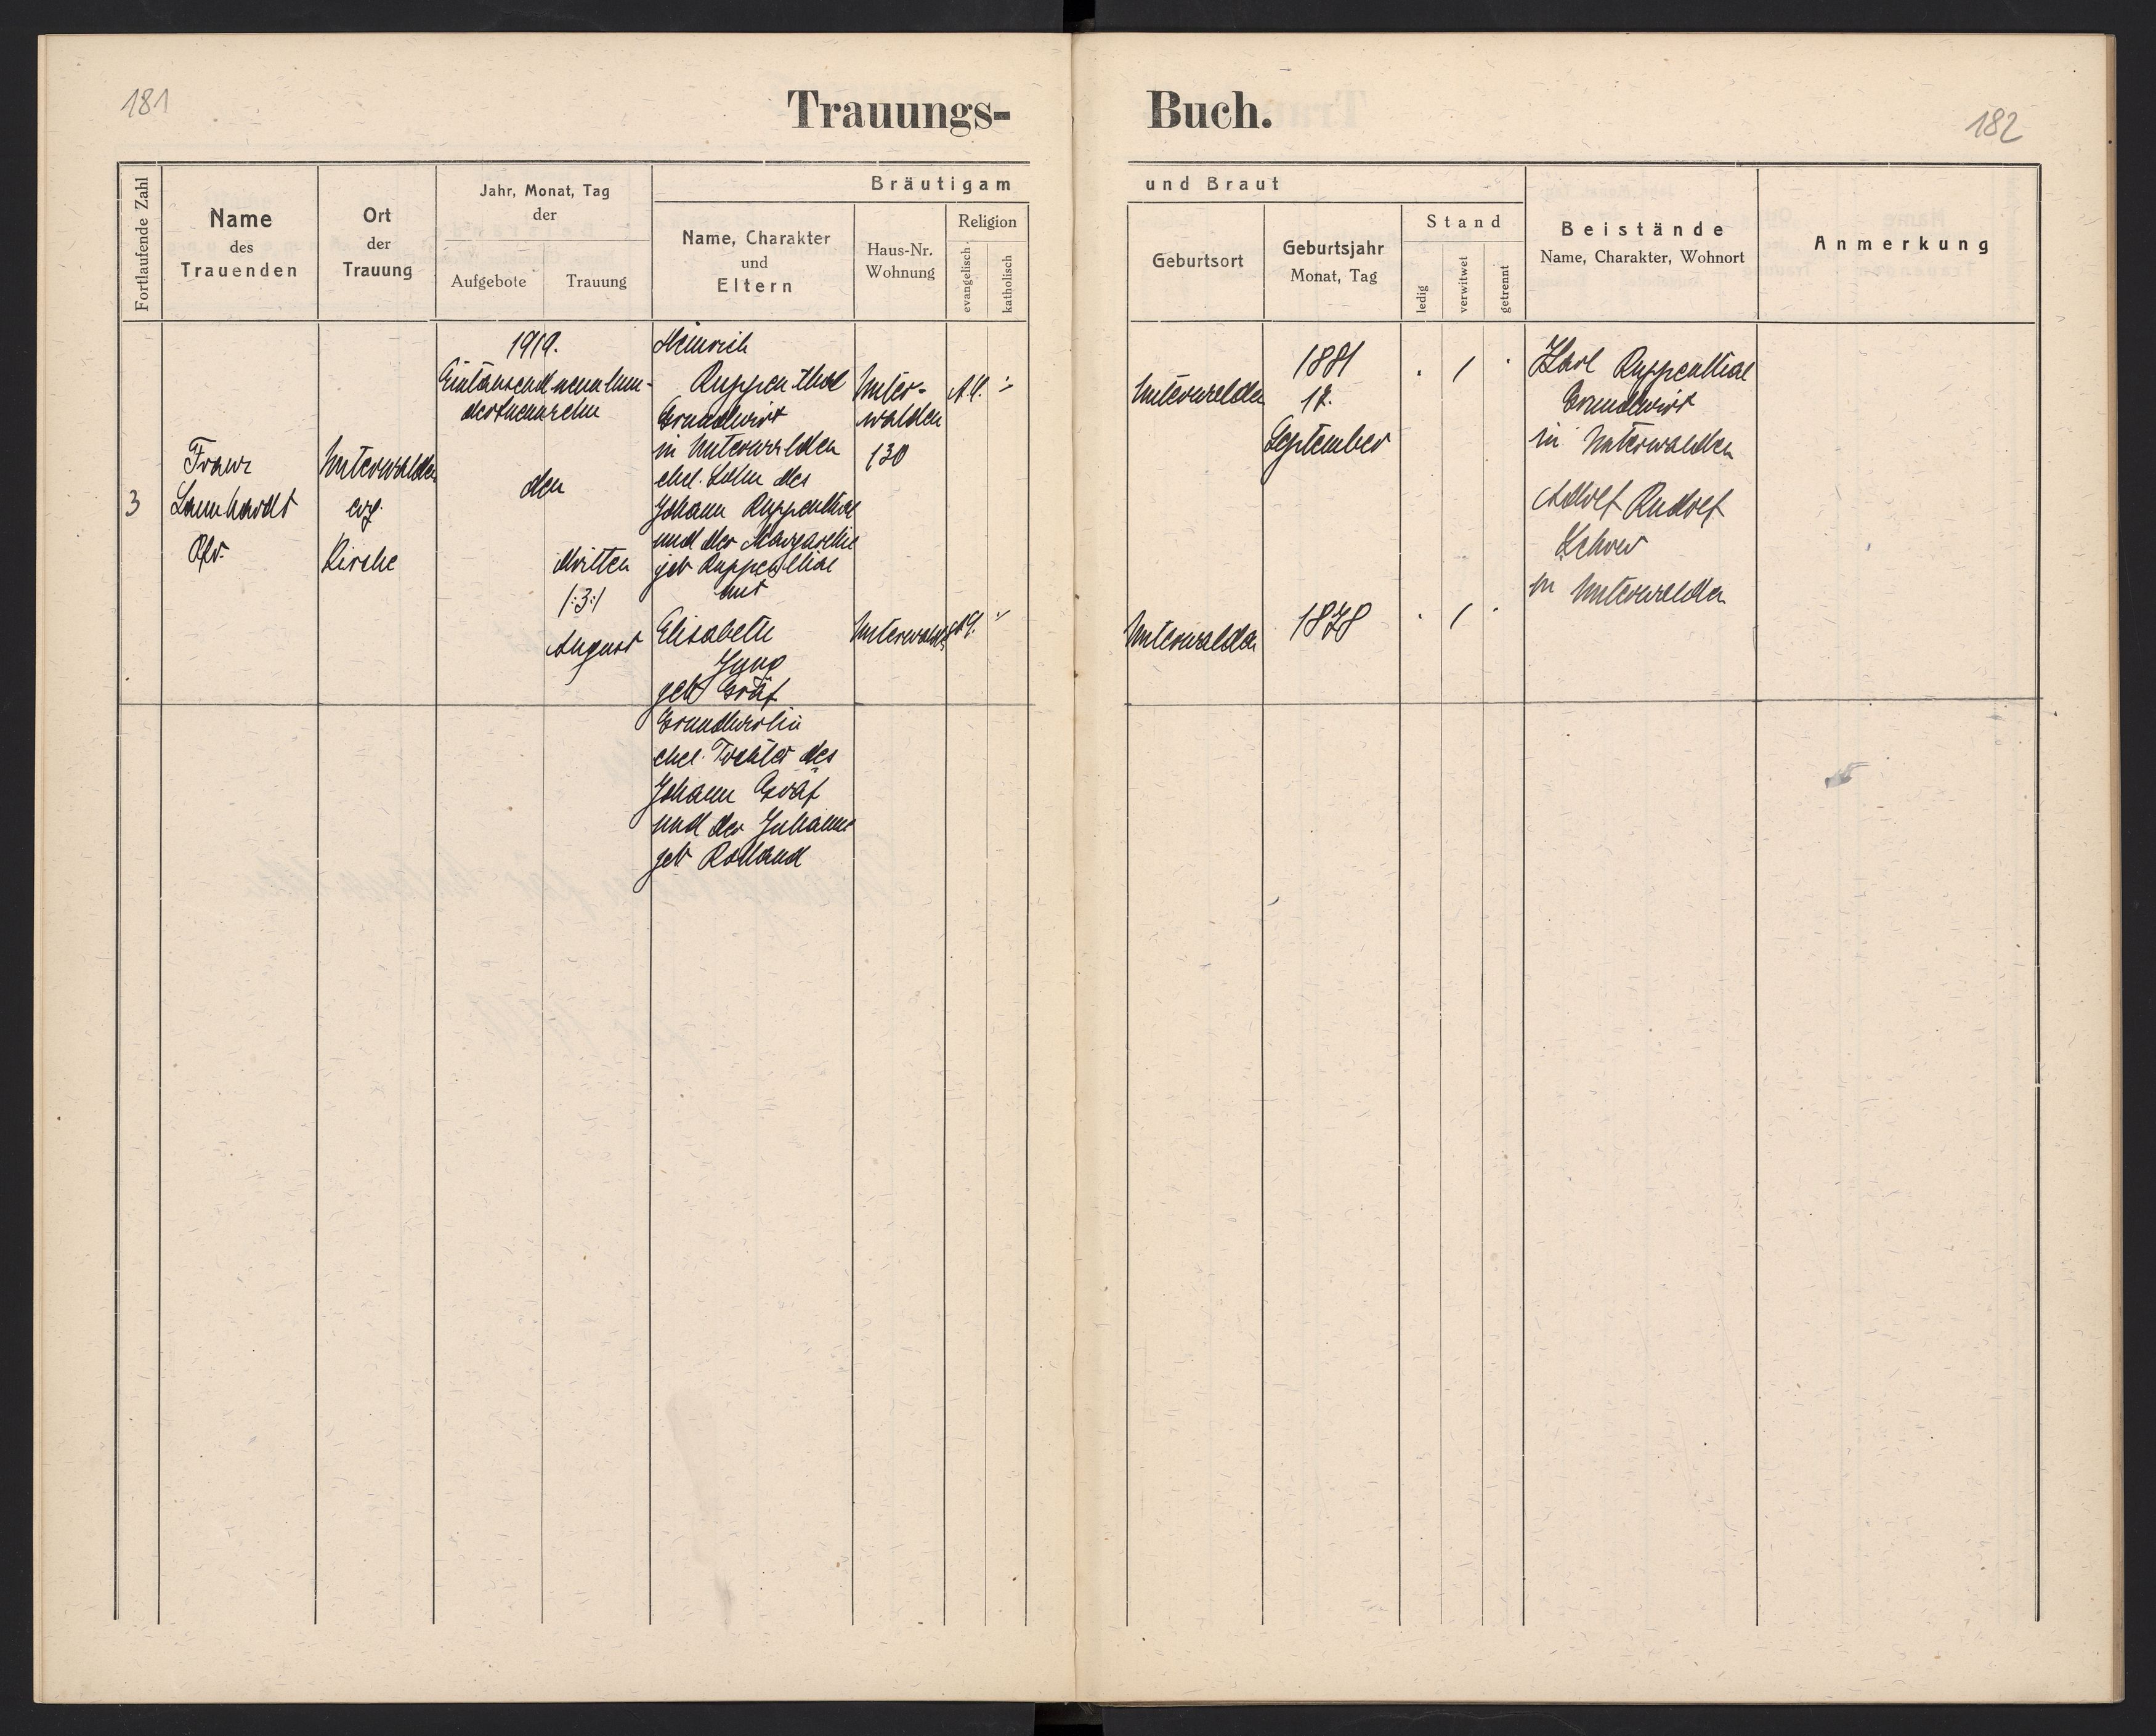 181
Trauungs-
Fortlaufende Zahl
Name
des
Trauenden
Ort
der
Trauung
Jahr, Monat, Tag
der
Aufgebote
Trauung
Bräutigam
Name, Charakter
und
Eltern
Haus-Nr.
Wohnung
Religion
evangelisch
katholisch
3
Franz
Lannhardt
Pfr.
Unterwalden
evg.
Kirche
1919.
Eintausendneunhun-
dertneunzehn
den
dritten
/:3:/
August
Heinrich
Ruppenthal
Grundwirt
in Unterwalden
ehel. Sohn des
Johann Ruppenthal
und der Margarethe
geb Ruppenthal
mit
Elisabeth
Jung
geb Gräf
Grundwirtin
ehel. Tochter des
Johann Gräf
und der Juliane
geb Rolland
Unter-
walden
130
A.C.
Unterwalden
Buch.
182
und Braut
Geburtsort
Geburtsjahr
Monat, Tag
Stand
ledig
verwitwet
getrennt
Beistände
Name, Charakter, Wohnort
Anmerkung
Unterwalden
1881
September
. / .
Karl Ruppenthal
Grundwirt
in Unterwalden
Adolf Rudolf
in Unterwalden
Unterwalden
1878
. / .